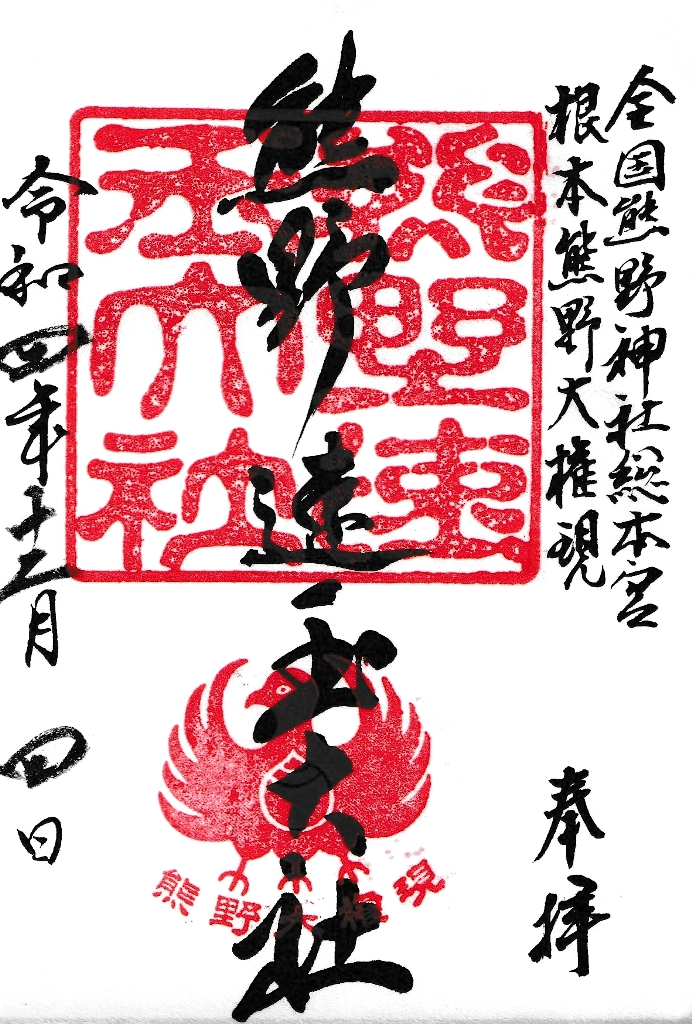 全国熊野神社総本宮
根本熊野大権現
奉拝
熊野速玉大社
熊野速玉大社
熊野大権現
令和四年十二月四日